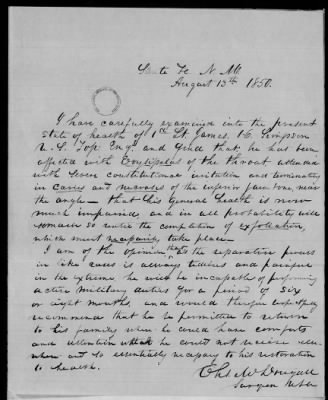 Santa Fe N. M.
August 13th 1850.
I have carefully examined into the present
state of health of 1st Lt. James H. Simpson
U. S. Top. Engs and find that he has been
affected with Erysipelas of the throat attended
with severe constitutional irritation and terminating
in Caries and necrosis of the inferior jaw bone, near
the angle — that his general health is now
much impaired and in all probability will
remain so until the completion of exfoliation,
which must necessarily take place.
I am of the opinion that as the reparative process
in like cases is always tedious and painful
in the extreme he will be incapable of performing
active military duties for a period of six
or eight months, and would therefore respectfully
recommend that he be permitted to return
to his family where he could have comforts
and attention which he could not receive else
where and so essentially necessary to his restoration
to health.
Chs. McDougall
Surgeon